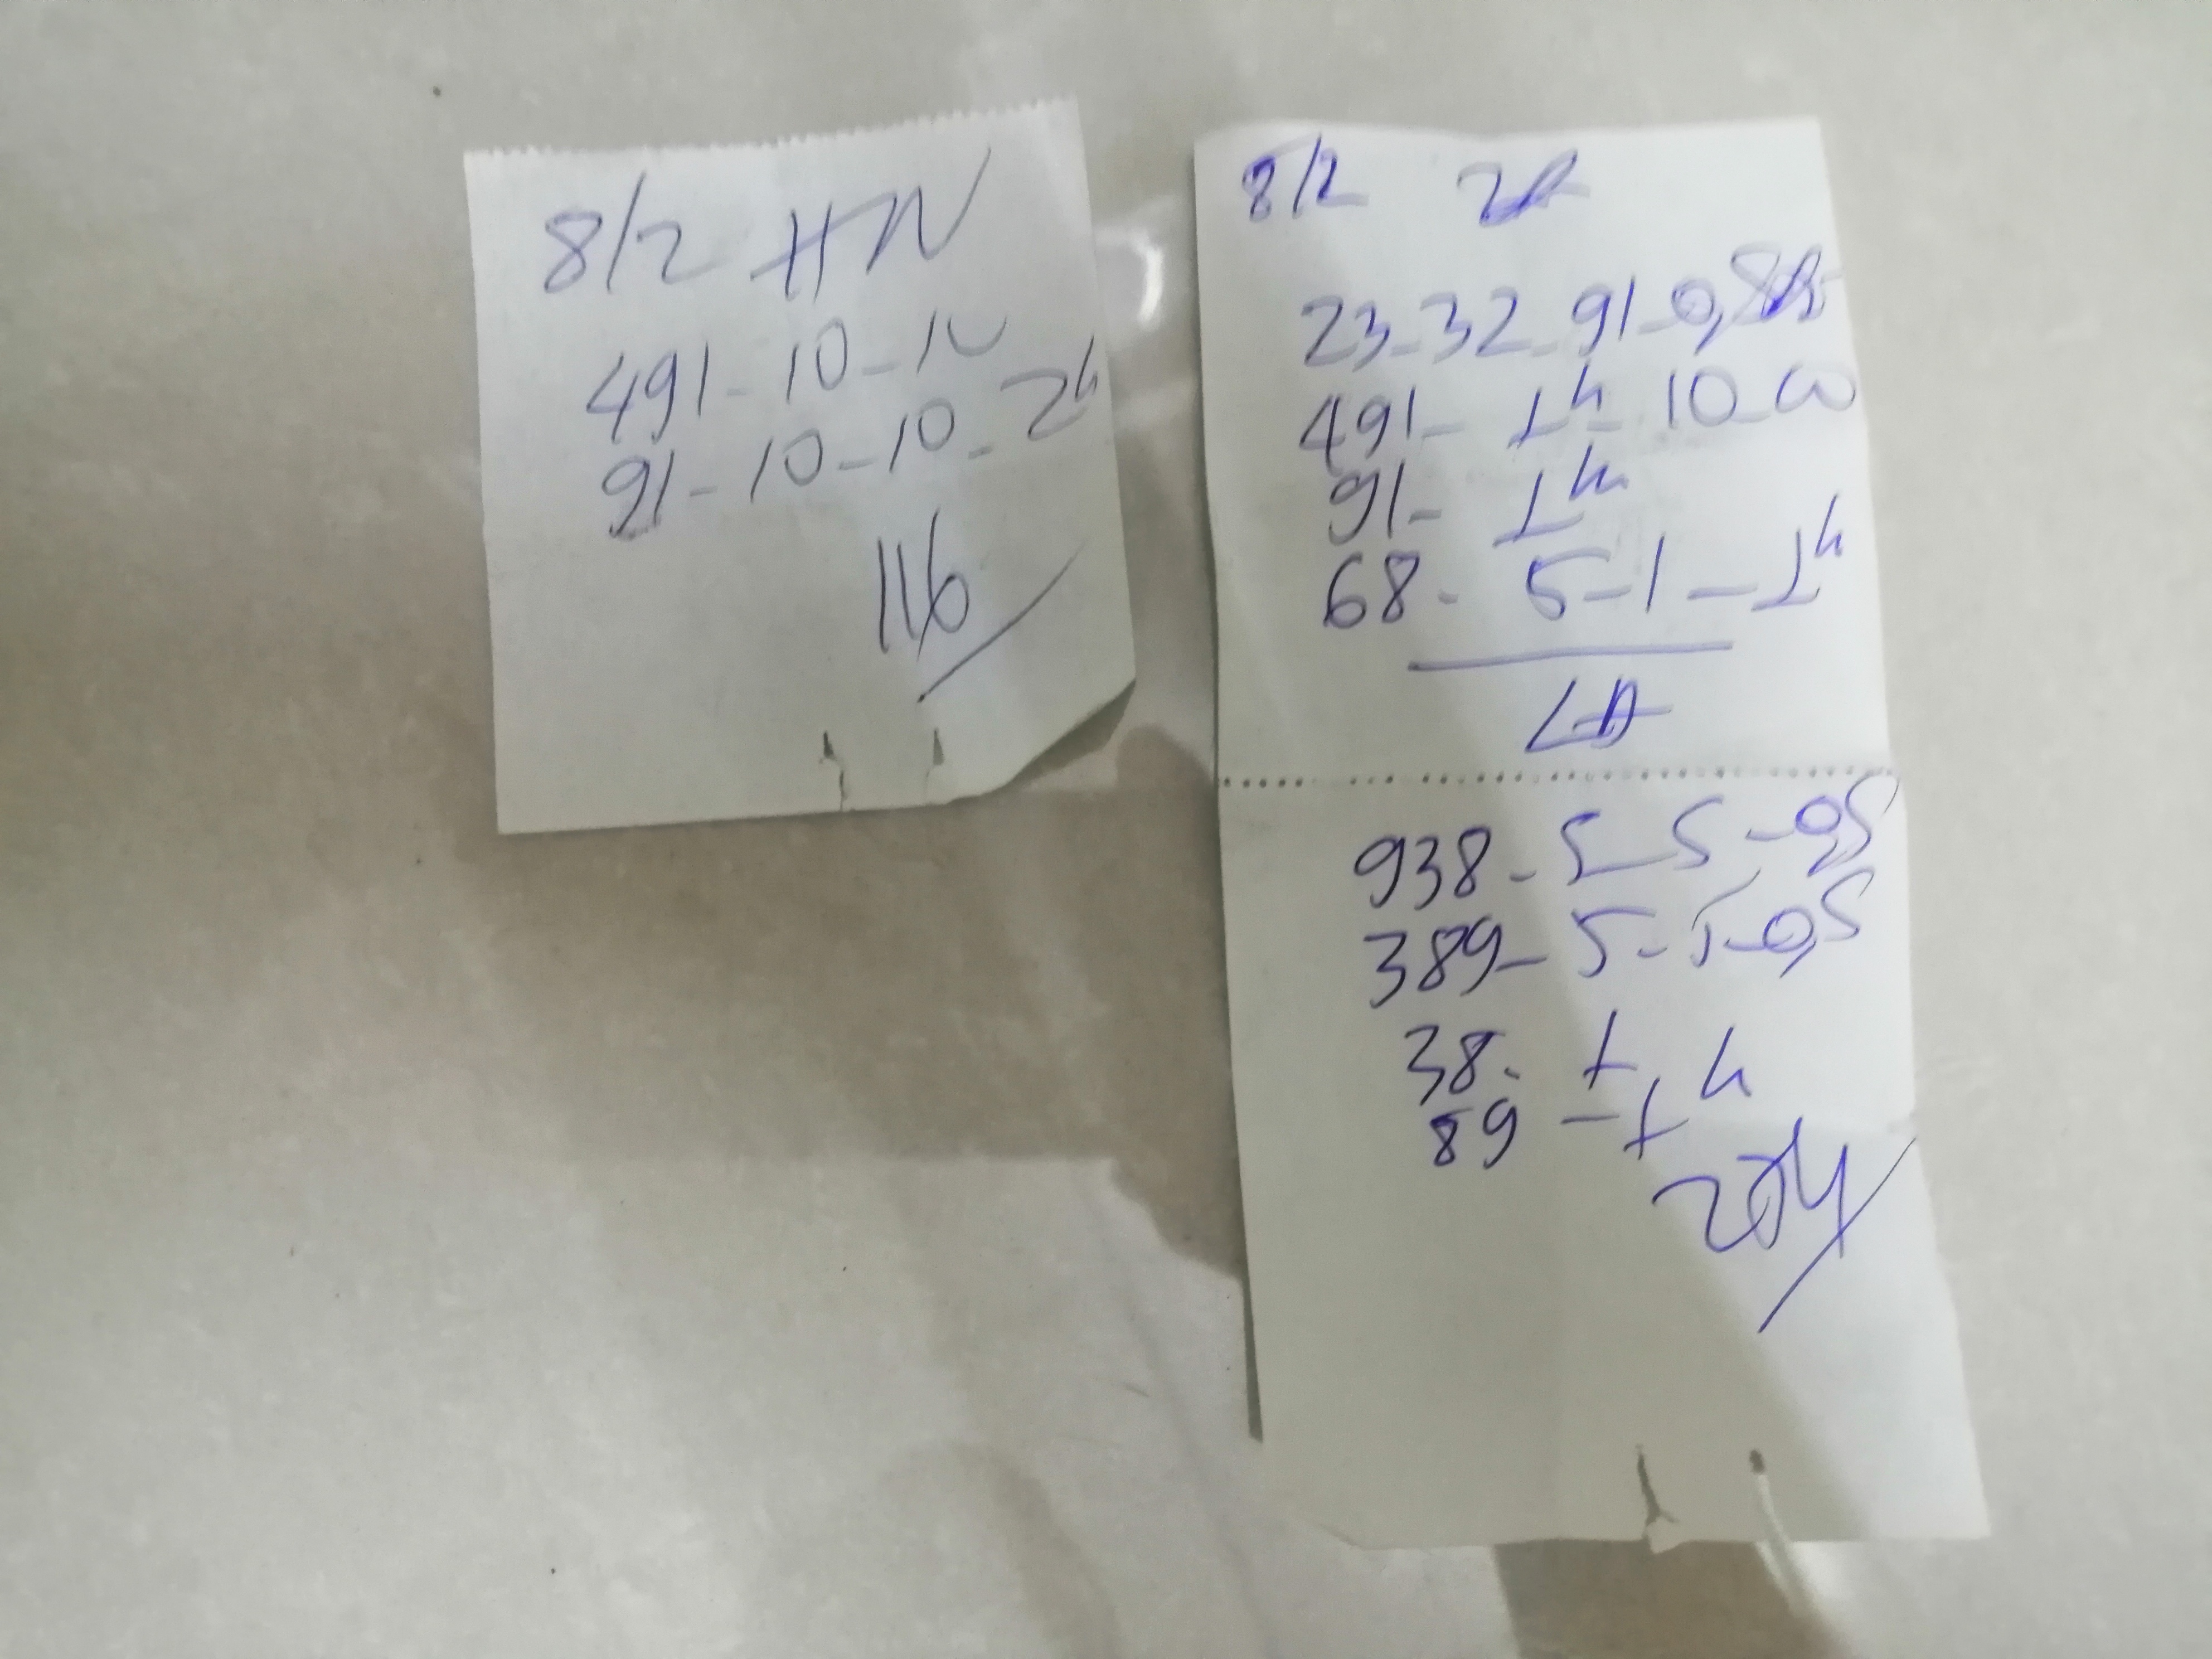 8/2 HN
491-10-10
91-10-10-2h
116
8/2 2Đ
23-32-91-0,8đx
491-1h-10-10
91-1h
68-5-1-1h
LA
938-5-5-0,5
389-5-5-0,5
38-1
89-1h
204